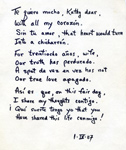 Te quiero mucho, Kathy dear,
With all my corazón.
Sin tu amor, that heart would turn
Into a chicharrón.
For treintiocho años, wife,
Our truth has perdurado.
A spat de vez en vez has not
Our true love apagado.
Así es que, on this fair day,
I share my thoughts contigo.
¡Qué suerte tengo yo that you
Have shared this life conmigo!
1·IX·07